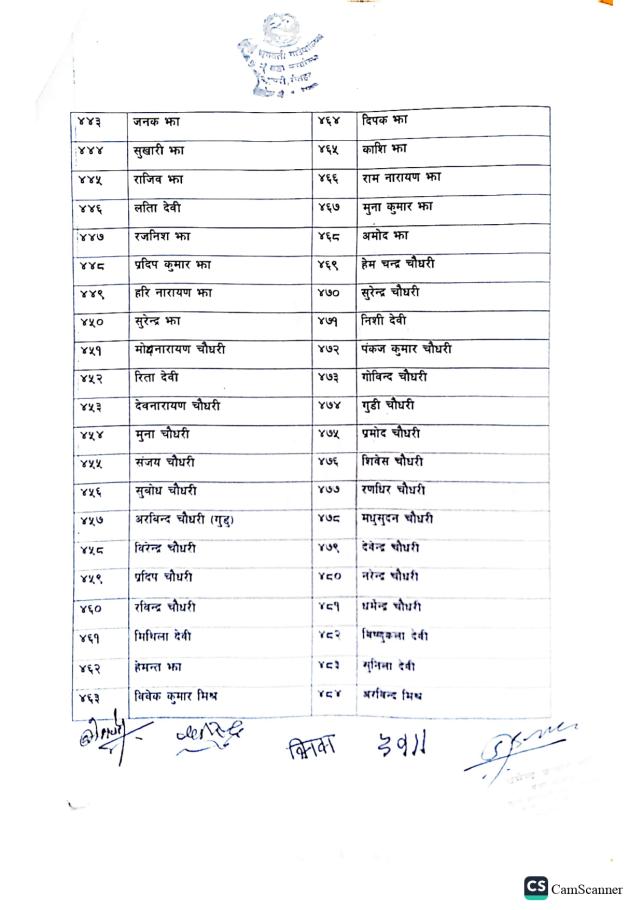 ४४३ जनक झा ४६४ दिपक झा
४४४ सुखारी झा ४६५ काशि झा
४४५ राजिव झा ४६६ राम नारायण झा
४४६ लता देवी ४६७ मुना कुमार झा
४४७ रजनिश झा ४६८ अमोद झा
४४८ प्रदिप कुमार झा ४६९ हेम चन्द्र चौधरी
४४९ हरि नारायण झा ४७० सुरेन्द्र चौधरी
४५० सुरेन्द्र झा ४७१ निशी देवी
४५१ चौधरी ४७२ पंकज कुमार चौधरी
४५२ रिता देवी ४७३ गोविन्द चौधरी
४५३ देवनारायण चौधरी ४७४ गुडी चौधरी
४५४ मुना चौधरी ४७५ प्रमोद चौधरी
४५५ संजय चौधरी ४७६ शिवेस चौधरी
४५६ सुवोध चौधरी ४७७ रणधिर चौधरी
४५७ अरबिन्द चौधरी (गुड्डु) ४७८ मधुसुदन चौधरी
४५८ विरेन्द्र चौधरी ४७९ देवेन्द्र चौधरी
४५९ प्रदिप चौधरी ४८० नरेन्द्र चौधरी
४६० रविन्द्र चौधरी ४८१ धमेन्द्र चौधरी
४६१ मिथिला देवी ४८२ बिष्णुकला देवी
४६२ हेमन्त झा ४८३ सुनिला देवी
४६३ विवेक कुमार मिश्र ४८४ अरविन्द मिश्र
CS CamScanner